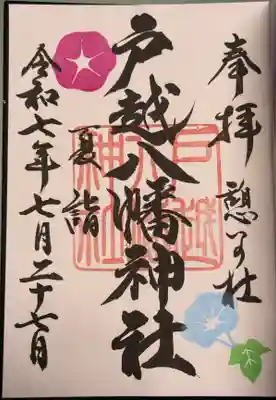 奉拝
憩の社
戸越八幡神社
戸越八幡神社
夏詣
令和七年七月二十七日